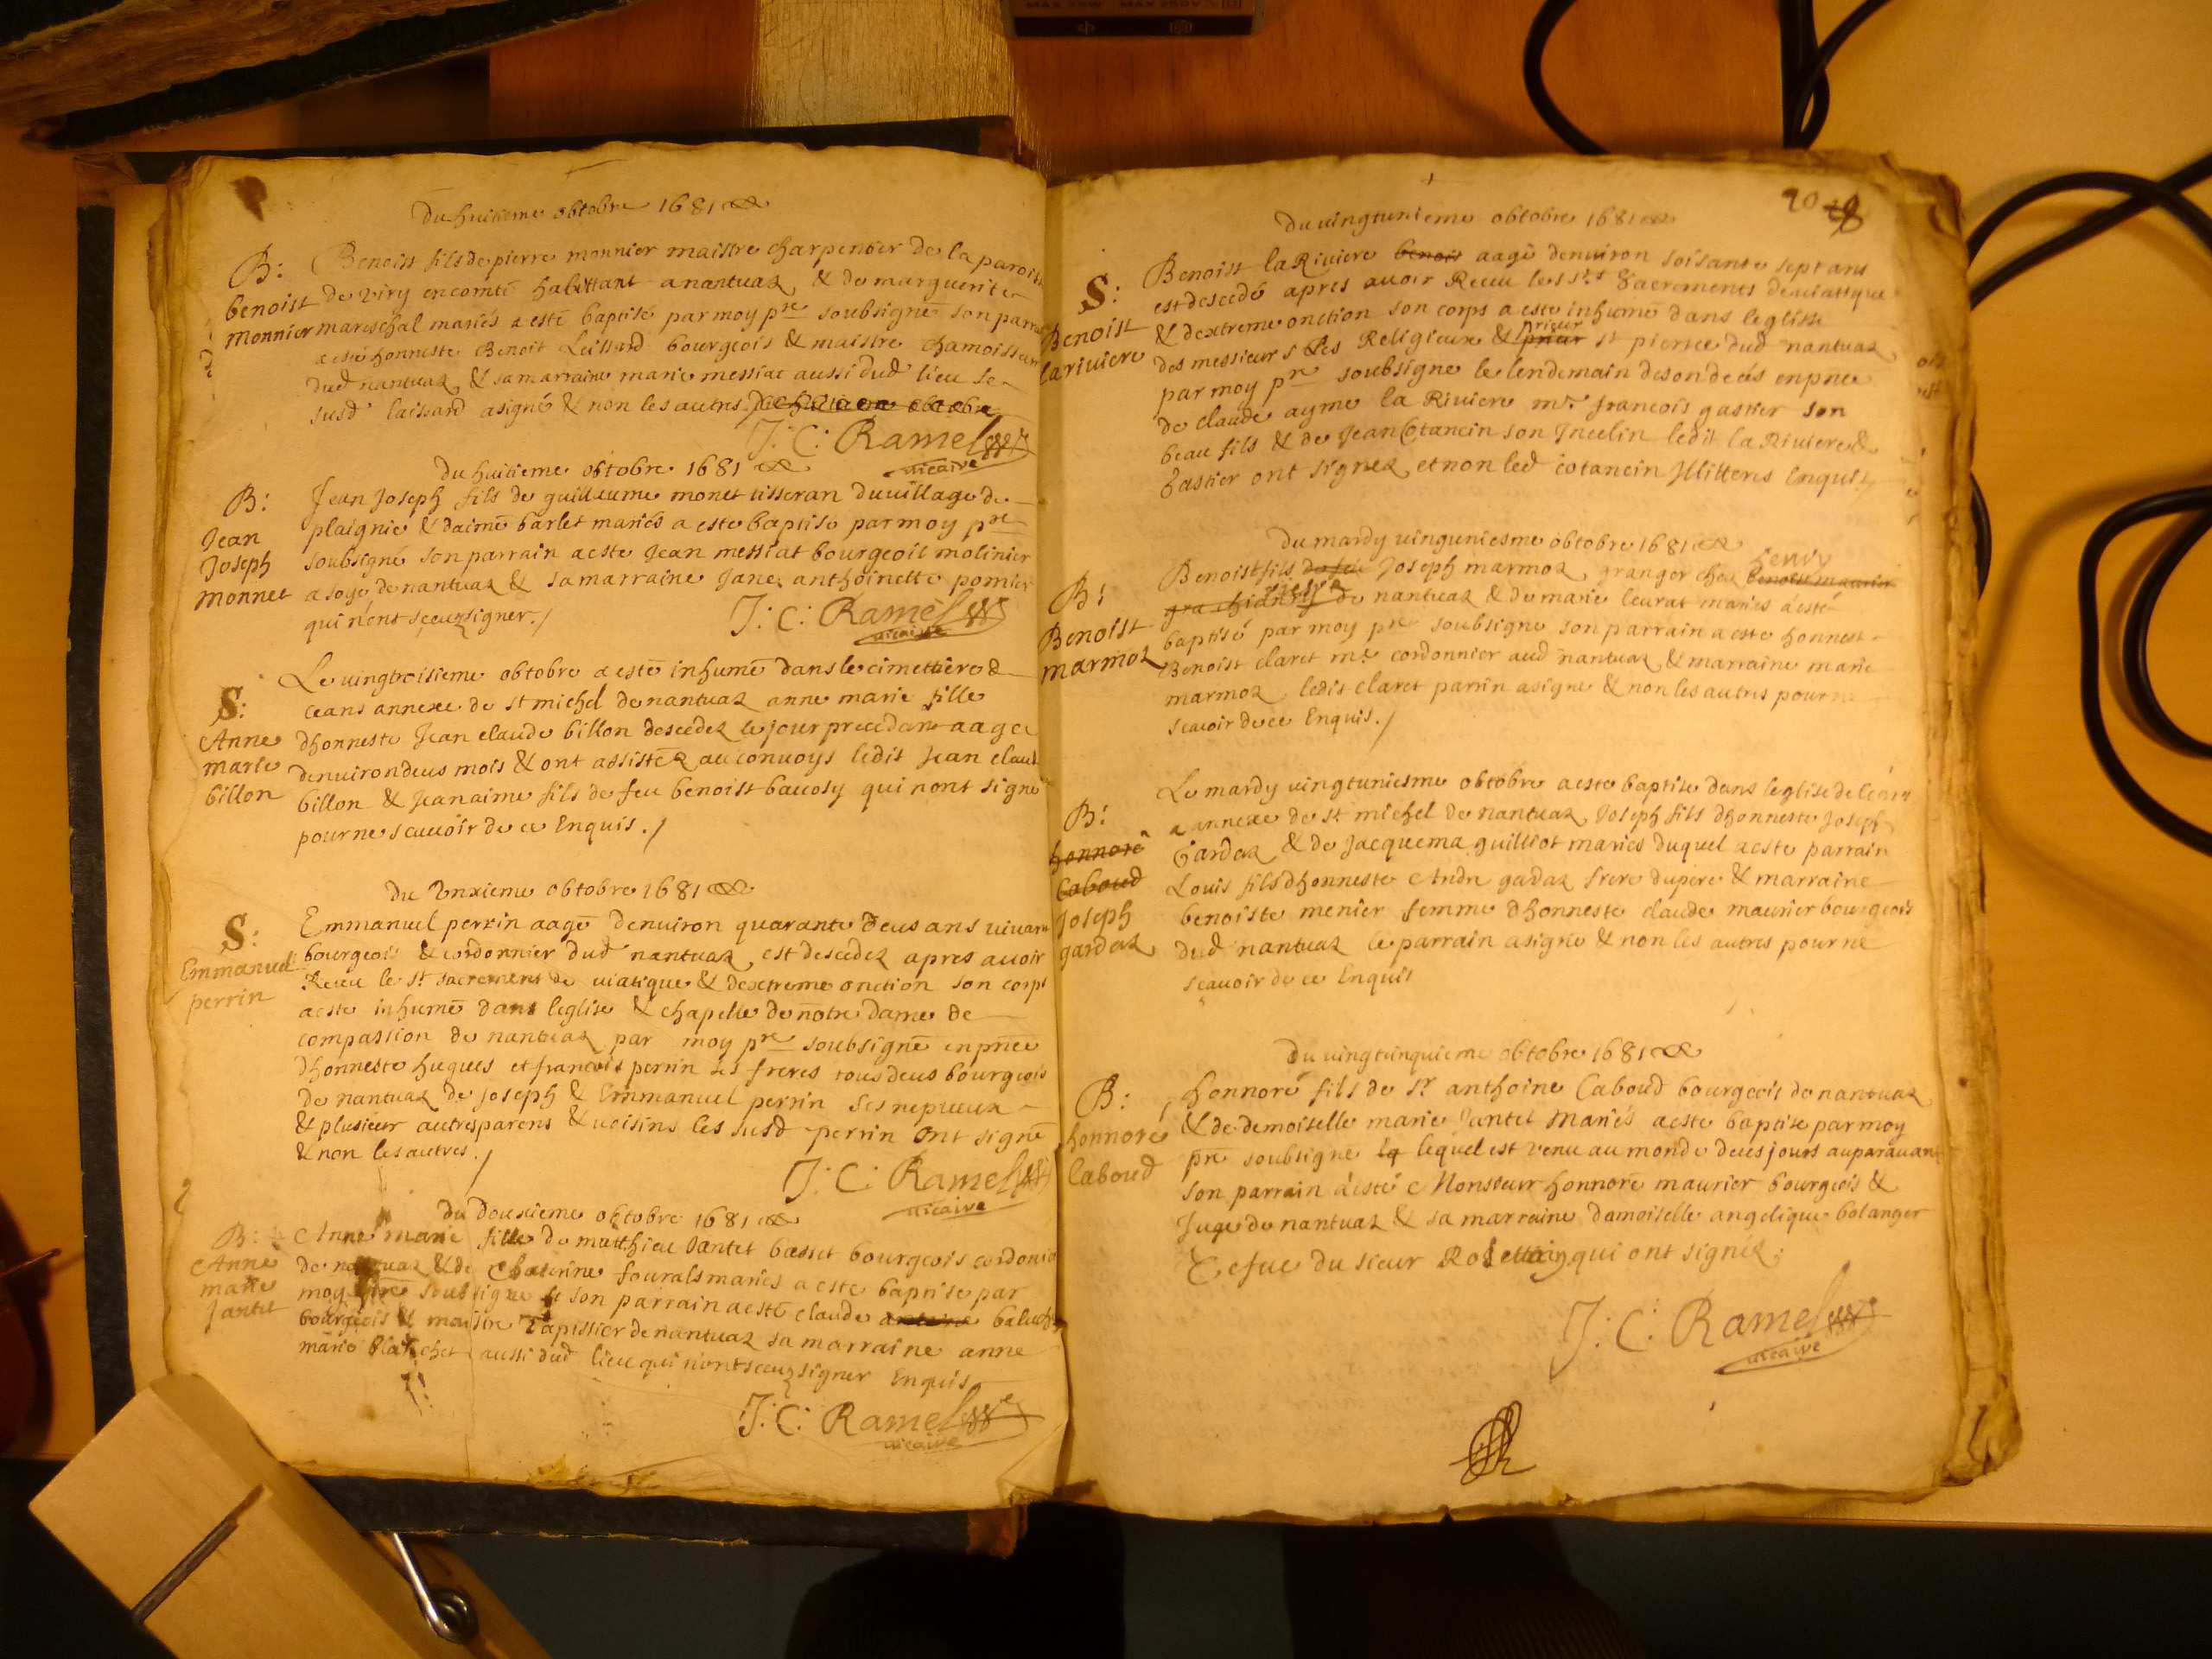 Du huitieme obtobre 1681
B:
benoist
monnier
Benoist fils de pierre monnier maistre charpentier de la paroisse
de viry en comté habittant a nantuaz & de marguerite
mareschal mariés a esté baptisé par moy pre soubsigné son parrain
a esté honneste Benoit Laissard bourgeois & maistre chamoisseur
dud nantuaz & sa marraine marie messiat aussi dud lieu le
susd laissard a signé & non les autres
J: C: Ramel
vicaire
Du huitieme obtobre 1681
B:
Jean
Joseph
monnet
Jean Joseph fils de guillaume monet tisseran du village de
plaignie & daimé barlet mariés a esté baptisé par moy pre
soubsigné son parrain a esté Jean messiat bourgeois molinier
a soye de nantuaz & sa marraine Jane anthoinette pomier
qui n'ont sceuz signer./
J: C: Ramel
vicaire
S:
Anne
marie
billon
Le vingtroisieme obtobre a esté inhumé dans le cimettiere de
ceans annexe de st michel de nantuaz anne marie fille
dhonneste Jean claude billon descedez le jour precedent aagee
denuiron deus mois & ont assistéz au conuoys ledit Jean claude
billon & Jean aime fils de feu benoist baccosy qui n'ont signé
pour ne scauoir de ce Enquis./
Du Unxieme obtobre 1681
S:
Emmanuel
perrin
Emmanuel perrin aagé denuiron quarante deus ans viuant
bourgeois & cordonnier dud nantuaz est descedez apres auoir
Receu le st sacrement de viatique & dextreme onction son corps
a esté inhumé dans leglise & chapelle de notre dame de
compassion de nantuaz par moy pre soubsigné en pnce
dhonneste hugues et francois perrin ses freres tous deus bourgeois
de nantuaz de joseph & Emmanuel perrin ses nepueux
& plusieur autres parens & voisins les susd perrin ont signé
& non les autres./
J: C: Ramel
vicaire
du Dousieme obtobre 1681
B:
Anne
marie
Jantet
Anne marie fille de matthieu Jantet basset bourgeois cordonier
de nantuaz & de Catherine fourals mariés a esté baptisé par
moy pre soubsigné son parrain a esté claude
bourgeois & maistre Tapissier de nantuaz sa marraine anne
marie Blanchet aussi dud lieu qui n'ont sceuz signer Enquis
J: C: Ramel
vicaire
20
Du vingtunieme obtobre 1681
S:
Benoist
lariuiere
Benoist la Riuiere benoit aagé denuiron soisante sept ans
est descedé apres auoir Receu les sts Sacrements de viatique
& dextreme onction son corps a esté inhumé dans leglise
des messieurs les Religieux & prieur st pierre dud nantuaz
par moy pre soubsigné le lendemain de son decés en pnce
de claude ayme la Riuiere mr. francois gastier son
beau fils & de Jean Cotancin son Jncelin ledit la Riuiere &
Gastier ont signez et non led cotancin Jlliteres Enquis
Du mardy vinguniesme obtobre 1681
B:
Benoist
marmoz
Benoist fils Joseph marmoz granger chez
de nantuaz & de marie leurat mariés a esté
baptisé par moy pre soubsigné son parrain a esté honneste
Benoist claret me. cordonnier aud nantuaz & marraine marie
marmoz ledit claret parrin a signé & non les autres pour ne
scauoir de ce Enquis./
B:
honnoré
Caboud
Joseph
gardaz
Le mardy vingtuniesme obtobre a esté baptisé dans leglise de ceans
annexe de st michel de nantuaz Joseph fils dhonneste Joseph
Gardaz & de Jacquema guilliot mariés duquel a esté parrain
Louis fils dhonneste Andre gadaz frere du pere & marraine
benoiste menier femme dhonneste claude maurier bourgeois
dud nantuaz le parrain a signé & non les autres pour ne
scauoir de ce Enquis
Du vingtcinquieme obtobre 1681
B:
honnoré
Caboud
honnoré fils de sr anthoine Caboud bourgeois de nantuaz
& de demoiselle marie Jantet mariés a esté baptisé par moy
pre soubsigné lequel est venu au monde deus jours auparauant
son parrain a esté Monsieur honnoré maurier bourgeois &
Juge de nantuaz & sa marraine damoiselle angelique bolanger
Vefue du sieur qui ont signéz.
J: C: Ramel
vicaire